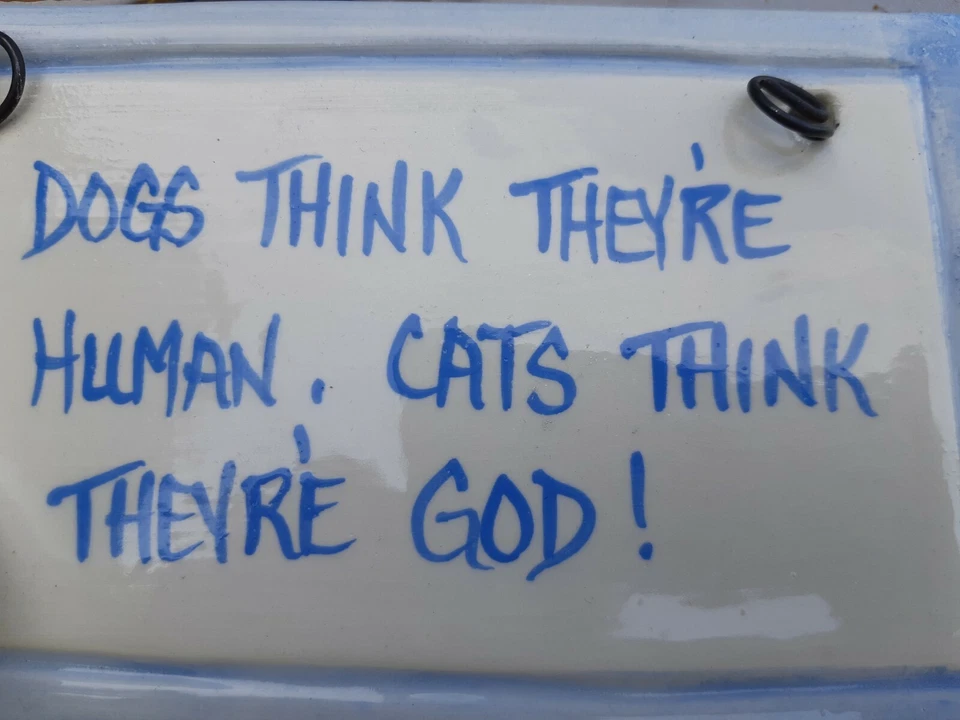 DOGS THINK THEY'RE
HUMAN. CATS THINK
THEY'RE GOD!